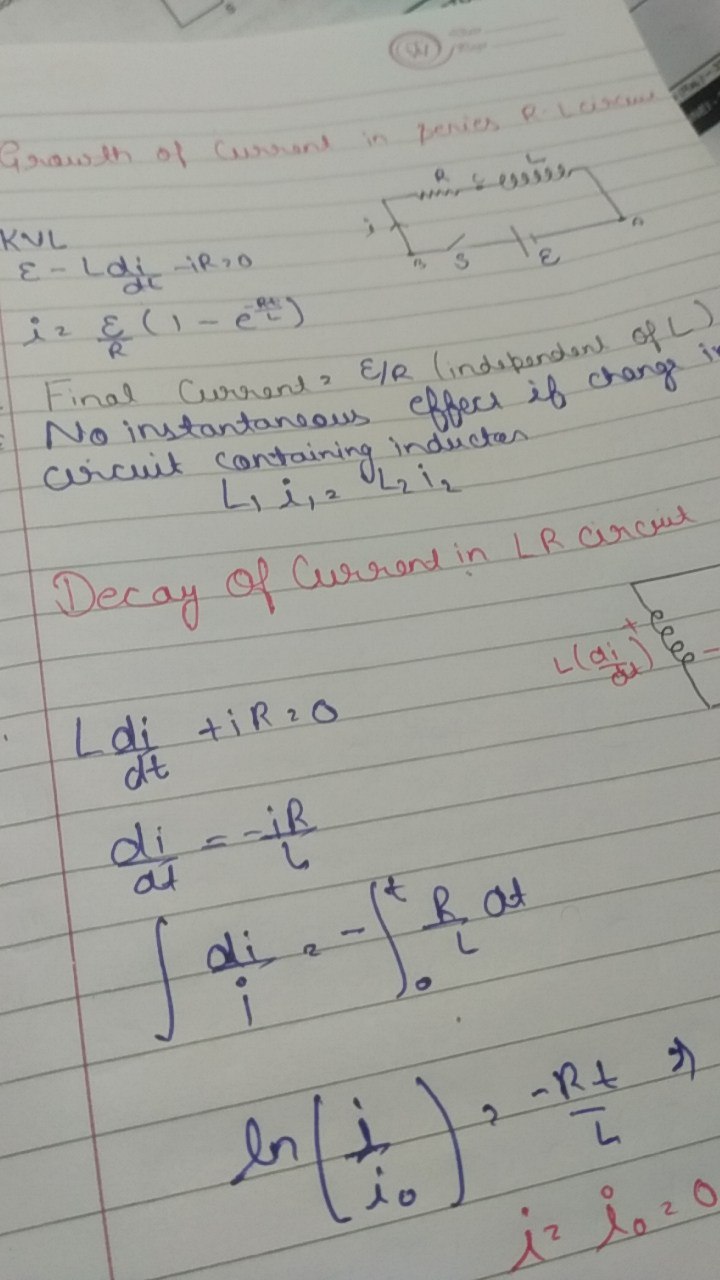 Growth of Current in series R-L circuit
R L
i
S ε
KVL
ε - L di/dt - iR = 0
i = ε/R (1 - e^(-Rt/L))
Final Current = ε/R (independent of L)
No instantaneous effect if change in
circuit containing inductor
L₁ i₁ = L₂ i₂
Decay Of Current in LR circuit
+ L(di/dt) -
L di/dt + iR = 0
di/dt = -iR/L
∫ di/i = -∫₀ᵗ R/L dt
ln(i/i₀) = -Rt/L ⇒
i = i₀ = 0